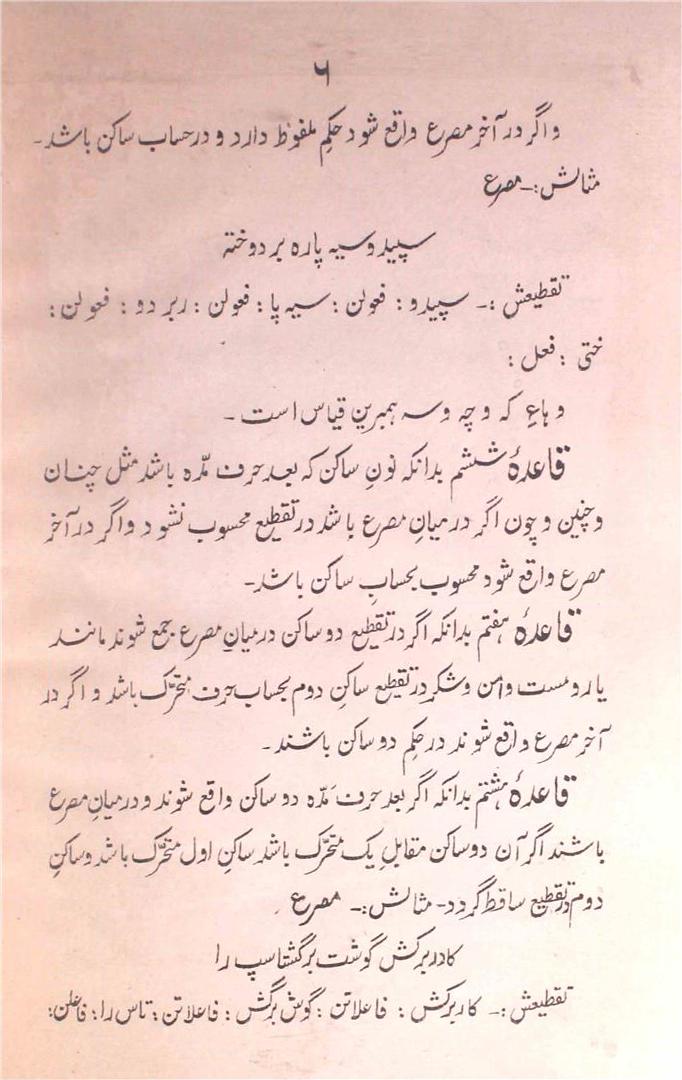 ۶
و اگر در آخر مصرع واقع شود حکم ملفوظ دارد و در حساب ساکن باشد۔
مثالش :۔ مصرع
سپید و سیه پاره بر دوخته
تقطیعش :۔ سپیدو : فعولن : سیه پا : فعولن : ربر دو : فعولن :
ختی : فعل :
و هاءِ که و چه و سه همبرین قیاس است ۔
قاعدۀ ششم بدانکه نونِ ساکن که بعد حرف مدّه باشد مثل چنان
و چنین و چون اگر در میانِ مصرع باشد در تقطیع محسوب نشود و اگر در آخر
مصرع واقع شود محسوب بحسابِ ساکن باشد۔
قاعدۀ هفتم بدانکه اگر در تقطیع دو ساکن در میانِ مصرع جمع شوند مانند
یار و مست و امن و شکر در تقطیع ساکنِ دوم بحساب حرف متحرّک باشد و اگر در
آخر مصرع واقع شوند در حکم دو ساکن باشند۔
قاعدۀ هشتم بدانکه اگر بعد حرف مَدّه دو ساکن واقع شوند و در میانِ مصرع
باشند اگر آن دو ساکن مقابلِ یک متحرّک باشد ساکنِ اول متحرّک باشد و ساکنِ
دوم در تقطیع ساقط گردد۔ مثالش :۔ مصرع
کارد برکش گوشت برگشتاسپ را
تقطیعش :۔ کار برکش : فاعلاتن : گوش برگش : فاعلاتن : تاس را : فاعلن :